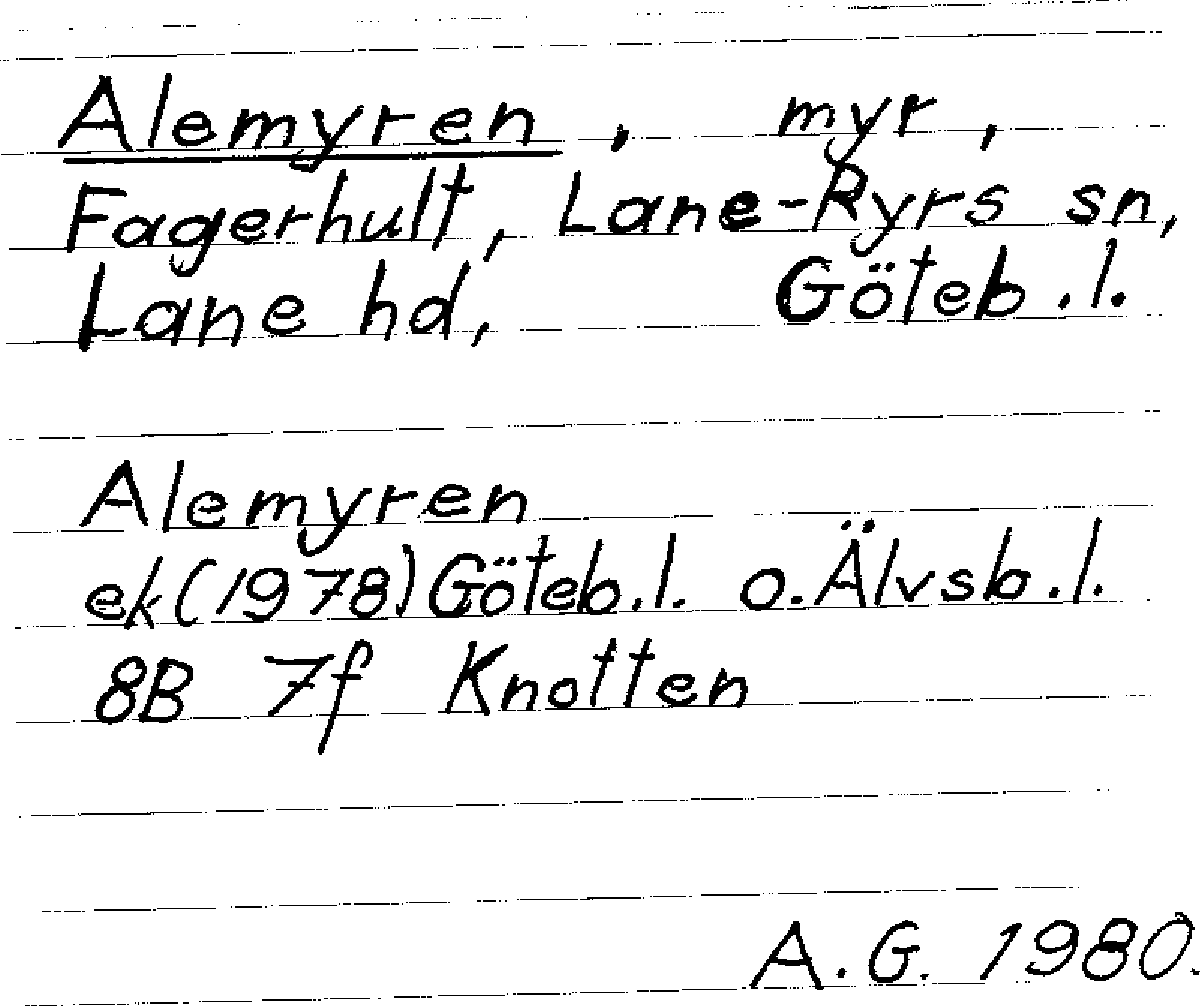 Alemyren, myr,
Fagerhult, Lane-Ryrs sn,
Lane hd, Göteb.l.
Alemyren
ek(1978) Göteb.l. o.Älvsb.l.
8B 7f Knotten
A.G. 1980.